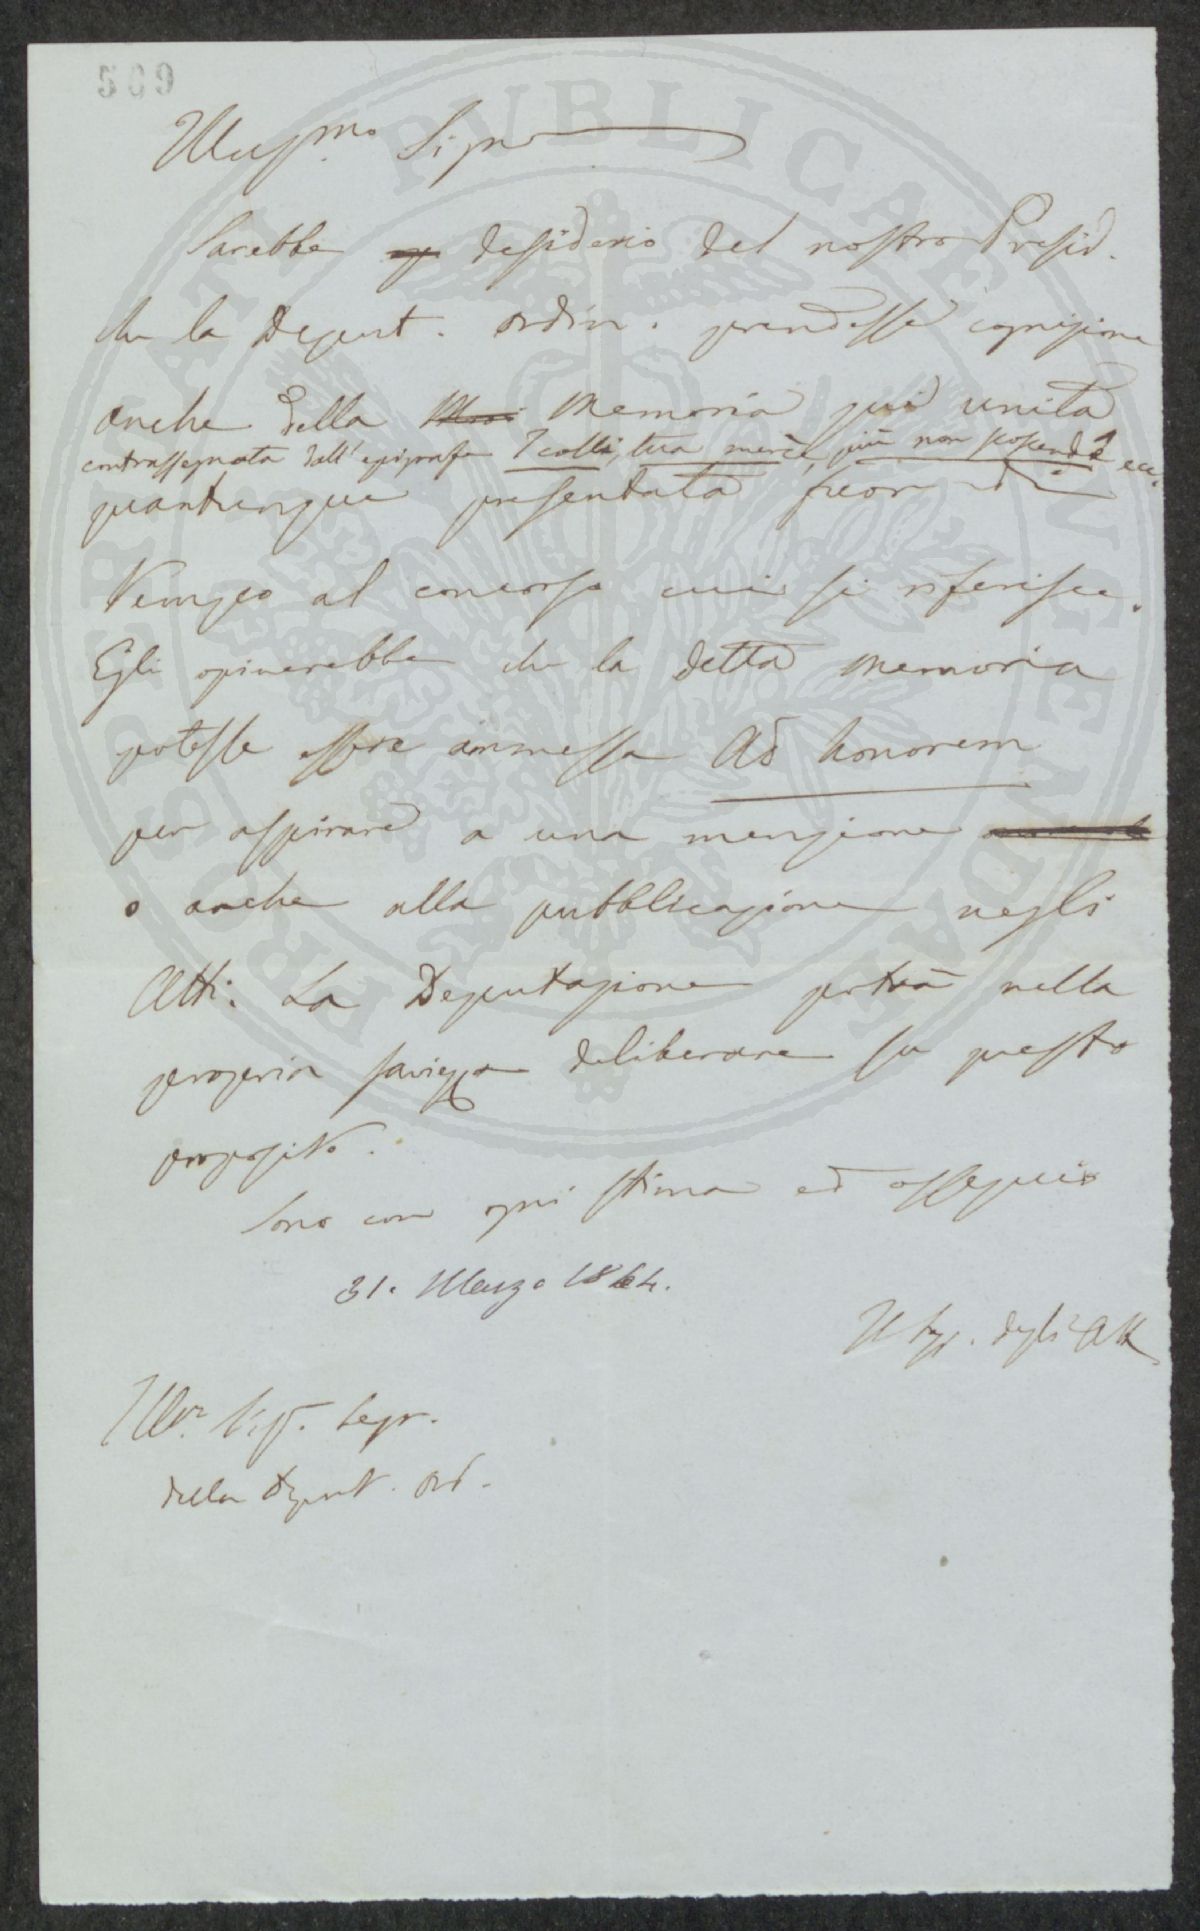 569
Illus.mo Signore
Sarebbe desiderio del nostro Presid.
che la Deput. ordin. prendesse cognizione
anche della Memoria qui unita
contrassegnata dall'epigrafe I colli, tua mercè, più non sospend ecc.
quantunque presentata fuor di
tempo al concorso cui si riferisce.
Egli opinerebbe che la detta memoria
potesse essere ammessa ad honorem
per aspirare a una menzione
o anche alla pubblicazione negli
Atti. La Deputazione potrà nella
propria saviezza deliberare su questo
proposito.
Sono con ogni stima ed ossequio
31. Marzo 1864.
Il Seg. degli Atti
Ill. Sig. Segr.
della Deput. Ord.
PROSPERITATI PUBLICAE AUGENDAE